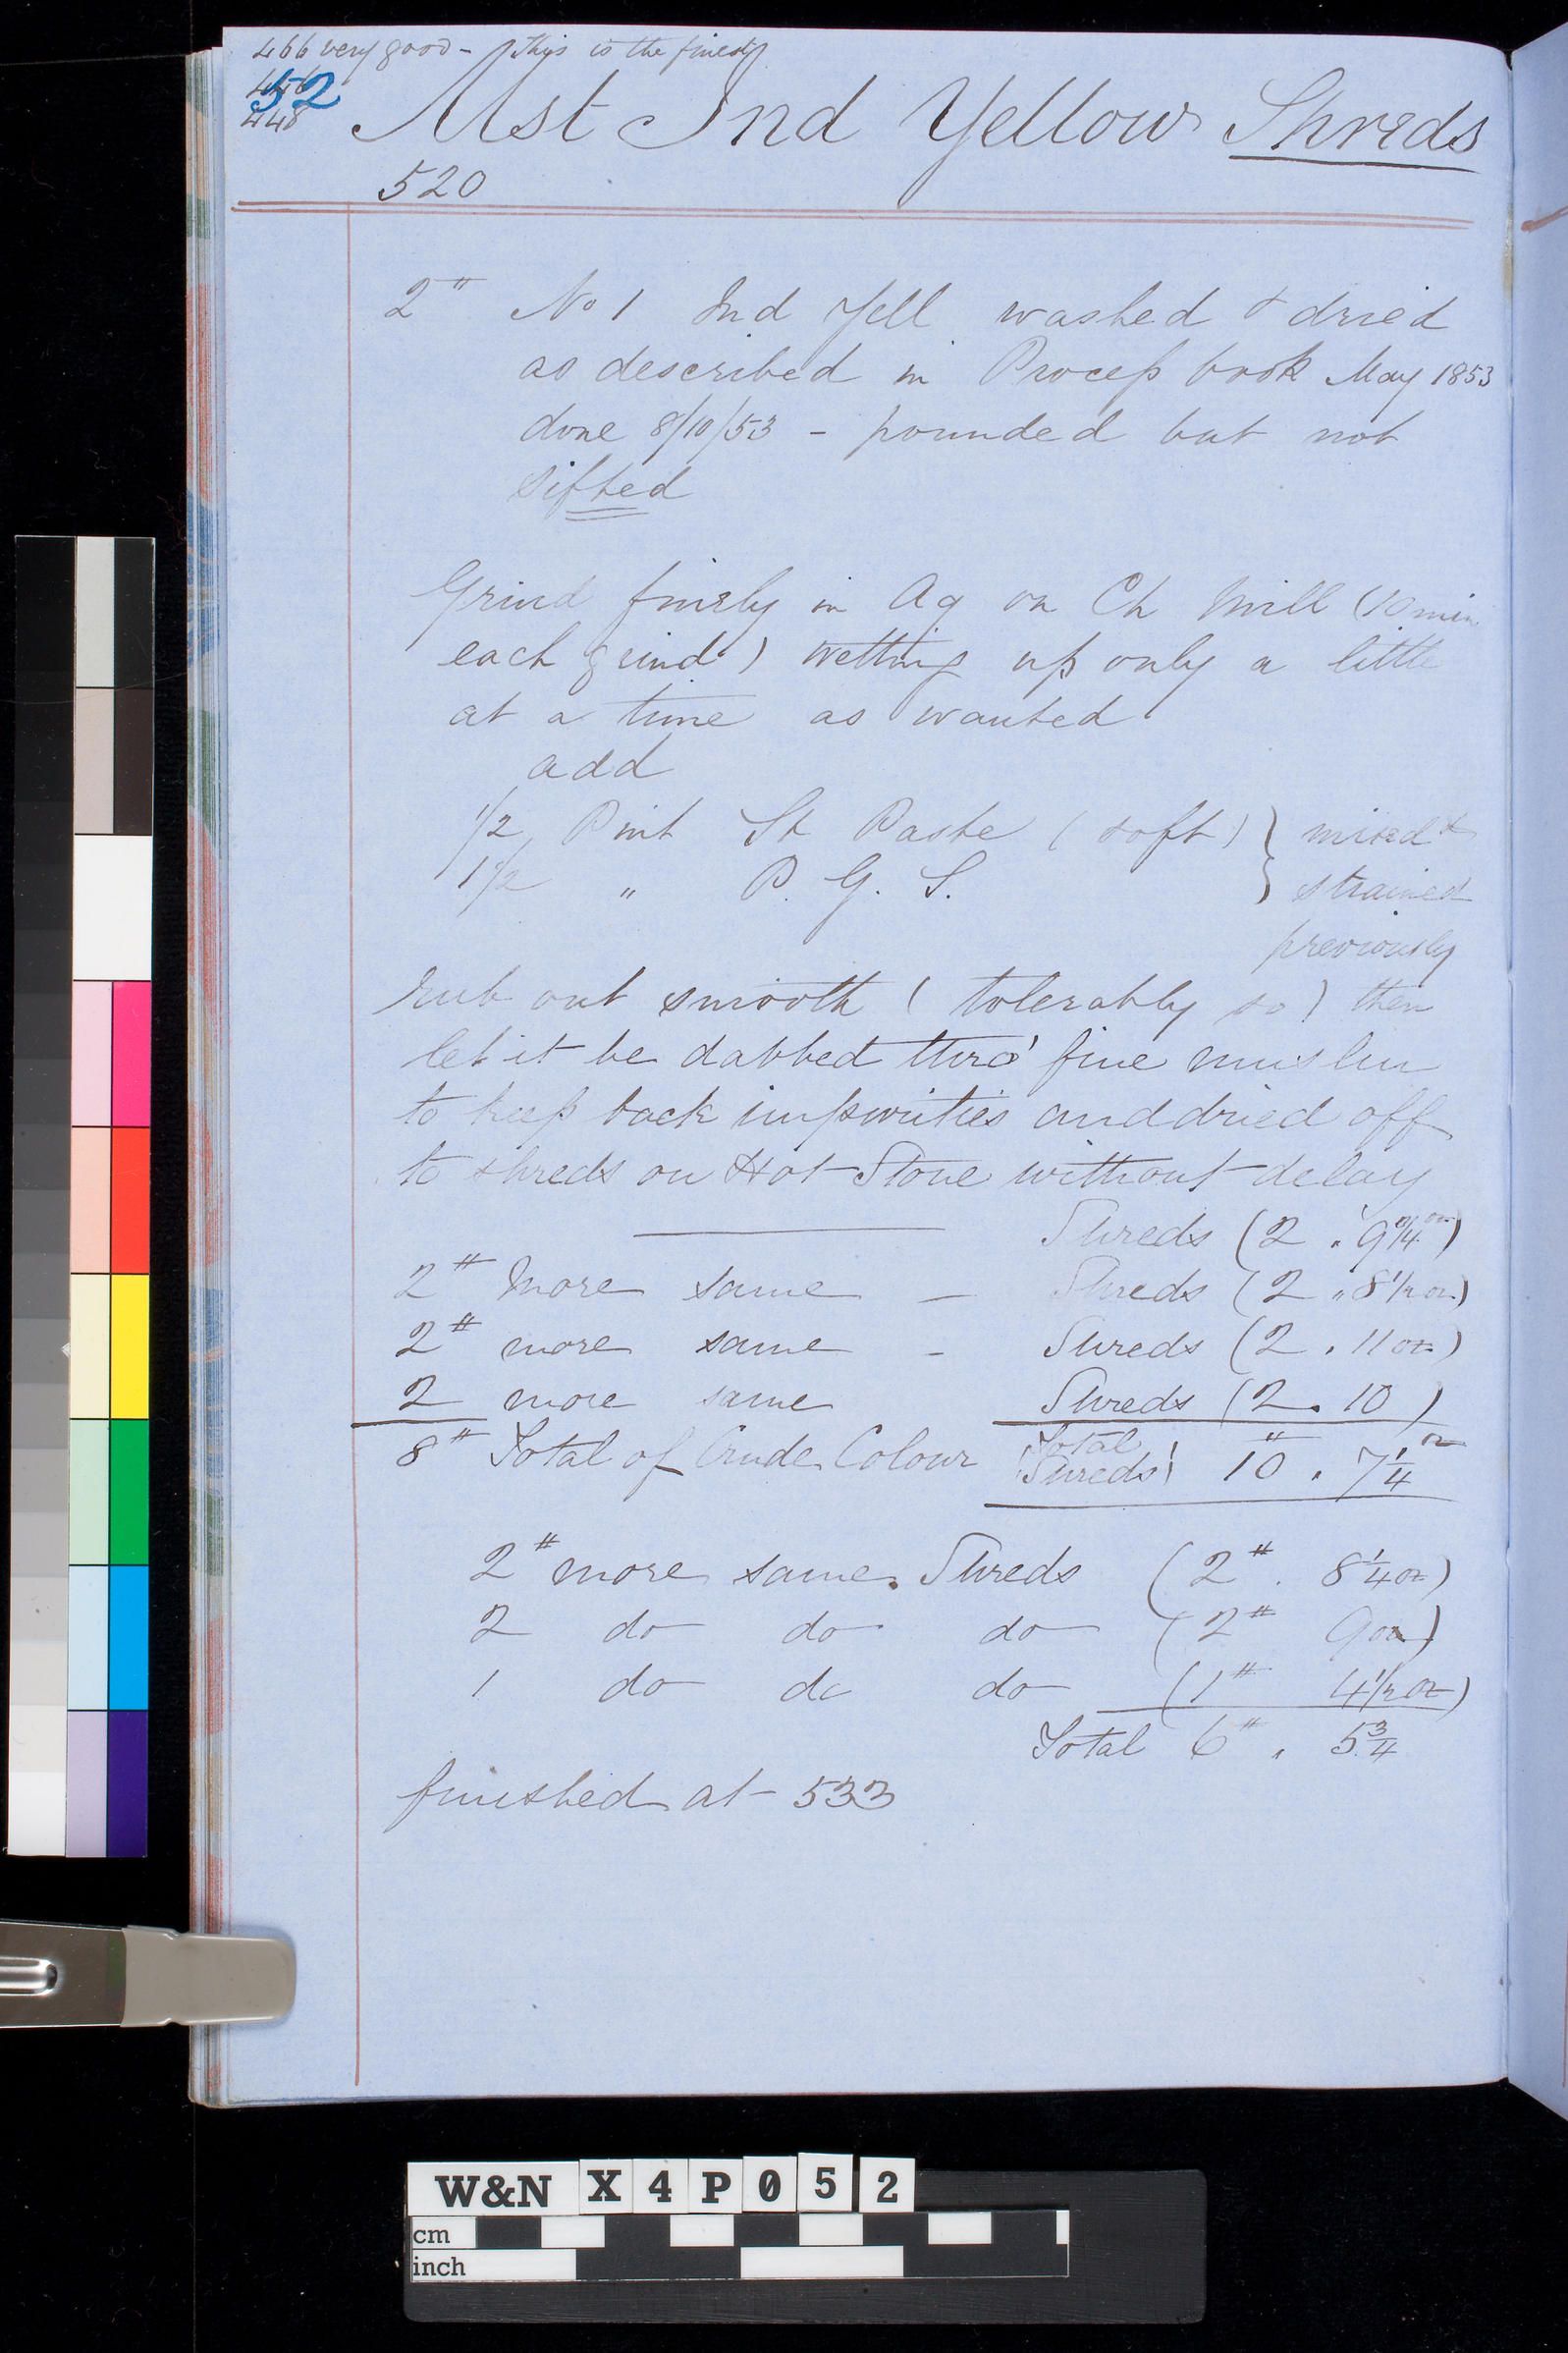 466 very good - This is the finest
456
52
448
Mst Ind Yellow Shreds
520
2" No 1 Ind Yell washed & dried
as described in Process book May 1853
done 8/10/53 - pounded but not
sifted
Grind finely in Aq on Ch Mill (10 min
each grind) wetting up only a little
at a time as wanted
add
1/2 Pint St Paste (soft) } mixed &
1 1/2 " P. G. S. } strained
previously
rub out smooth (tolerably so) then
let it be dabbed thro' fine muslin
to keep back impurities and dried off
to shreds on Hot Stone without delay
Shreds (2 . 9 1/4 oz)
2# More same - Shreds (2 " 8 1/2 oz)
2# more same - Shreds (2 . 11 oz)
2 more same Shreds (2 . 10 )
8# Total of Crude Colour Total Shreds 10" . 7 1/4 oz
2# more same. Shreds (2# . 8 1/4 oz)
2 do do do (2# 9 oz)
1 do do do (1# 4 1/2 oz)
Total 6# . 5 3/4
finished at 533
W&N X4P052
cm
inch